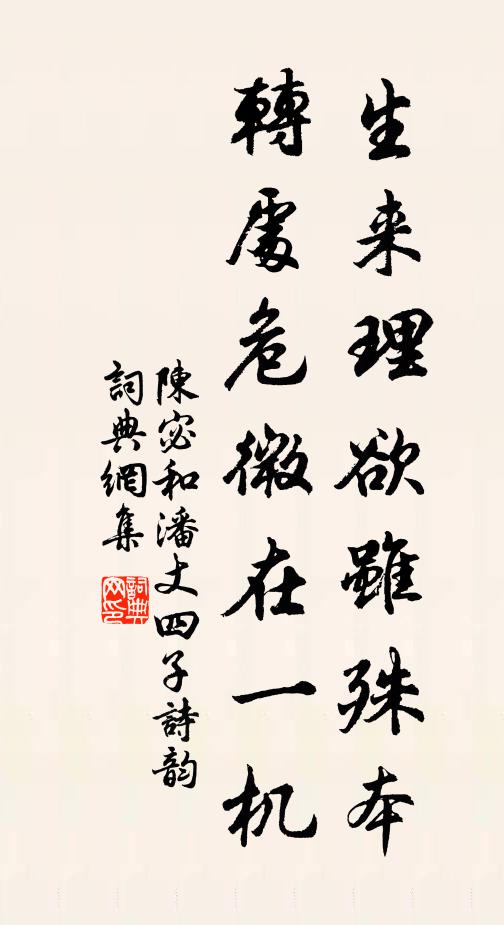 生来理欲雖殊本
轉處危微在一机
陳宓和潘丈四子詩韵
詞典網集
詞典网印